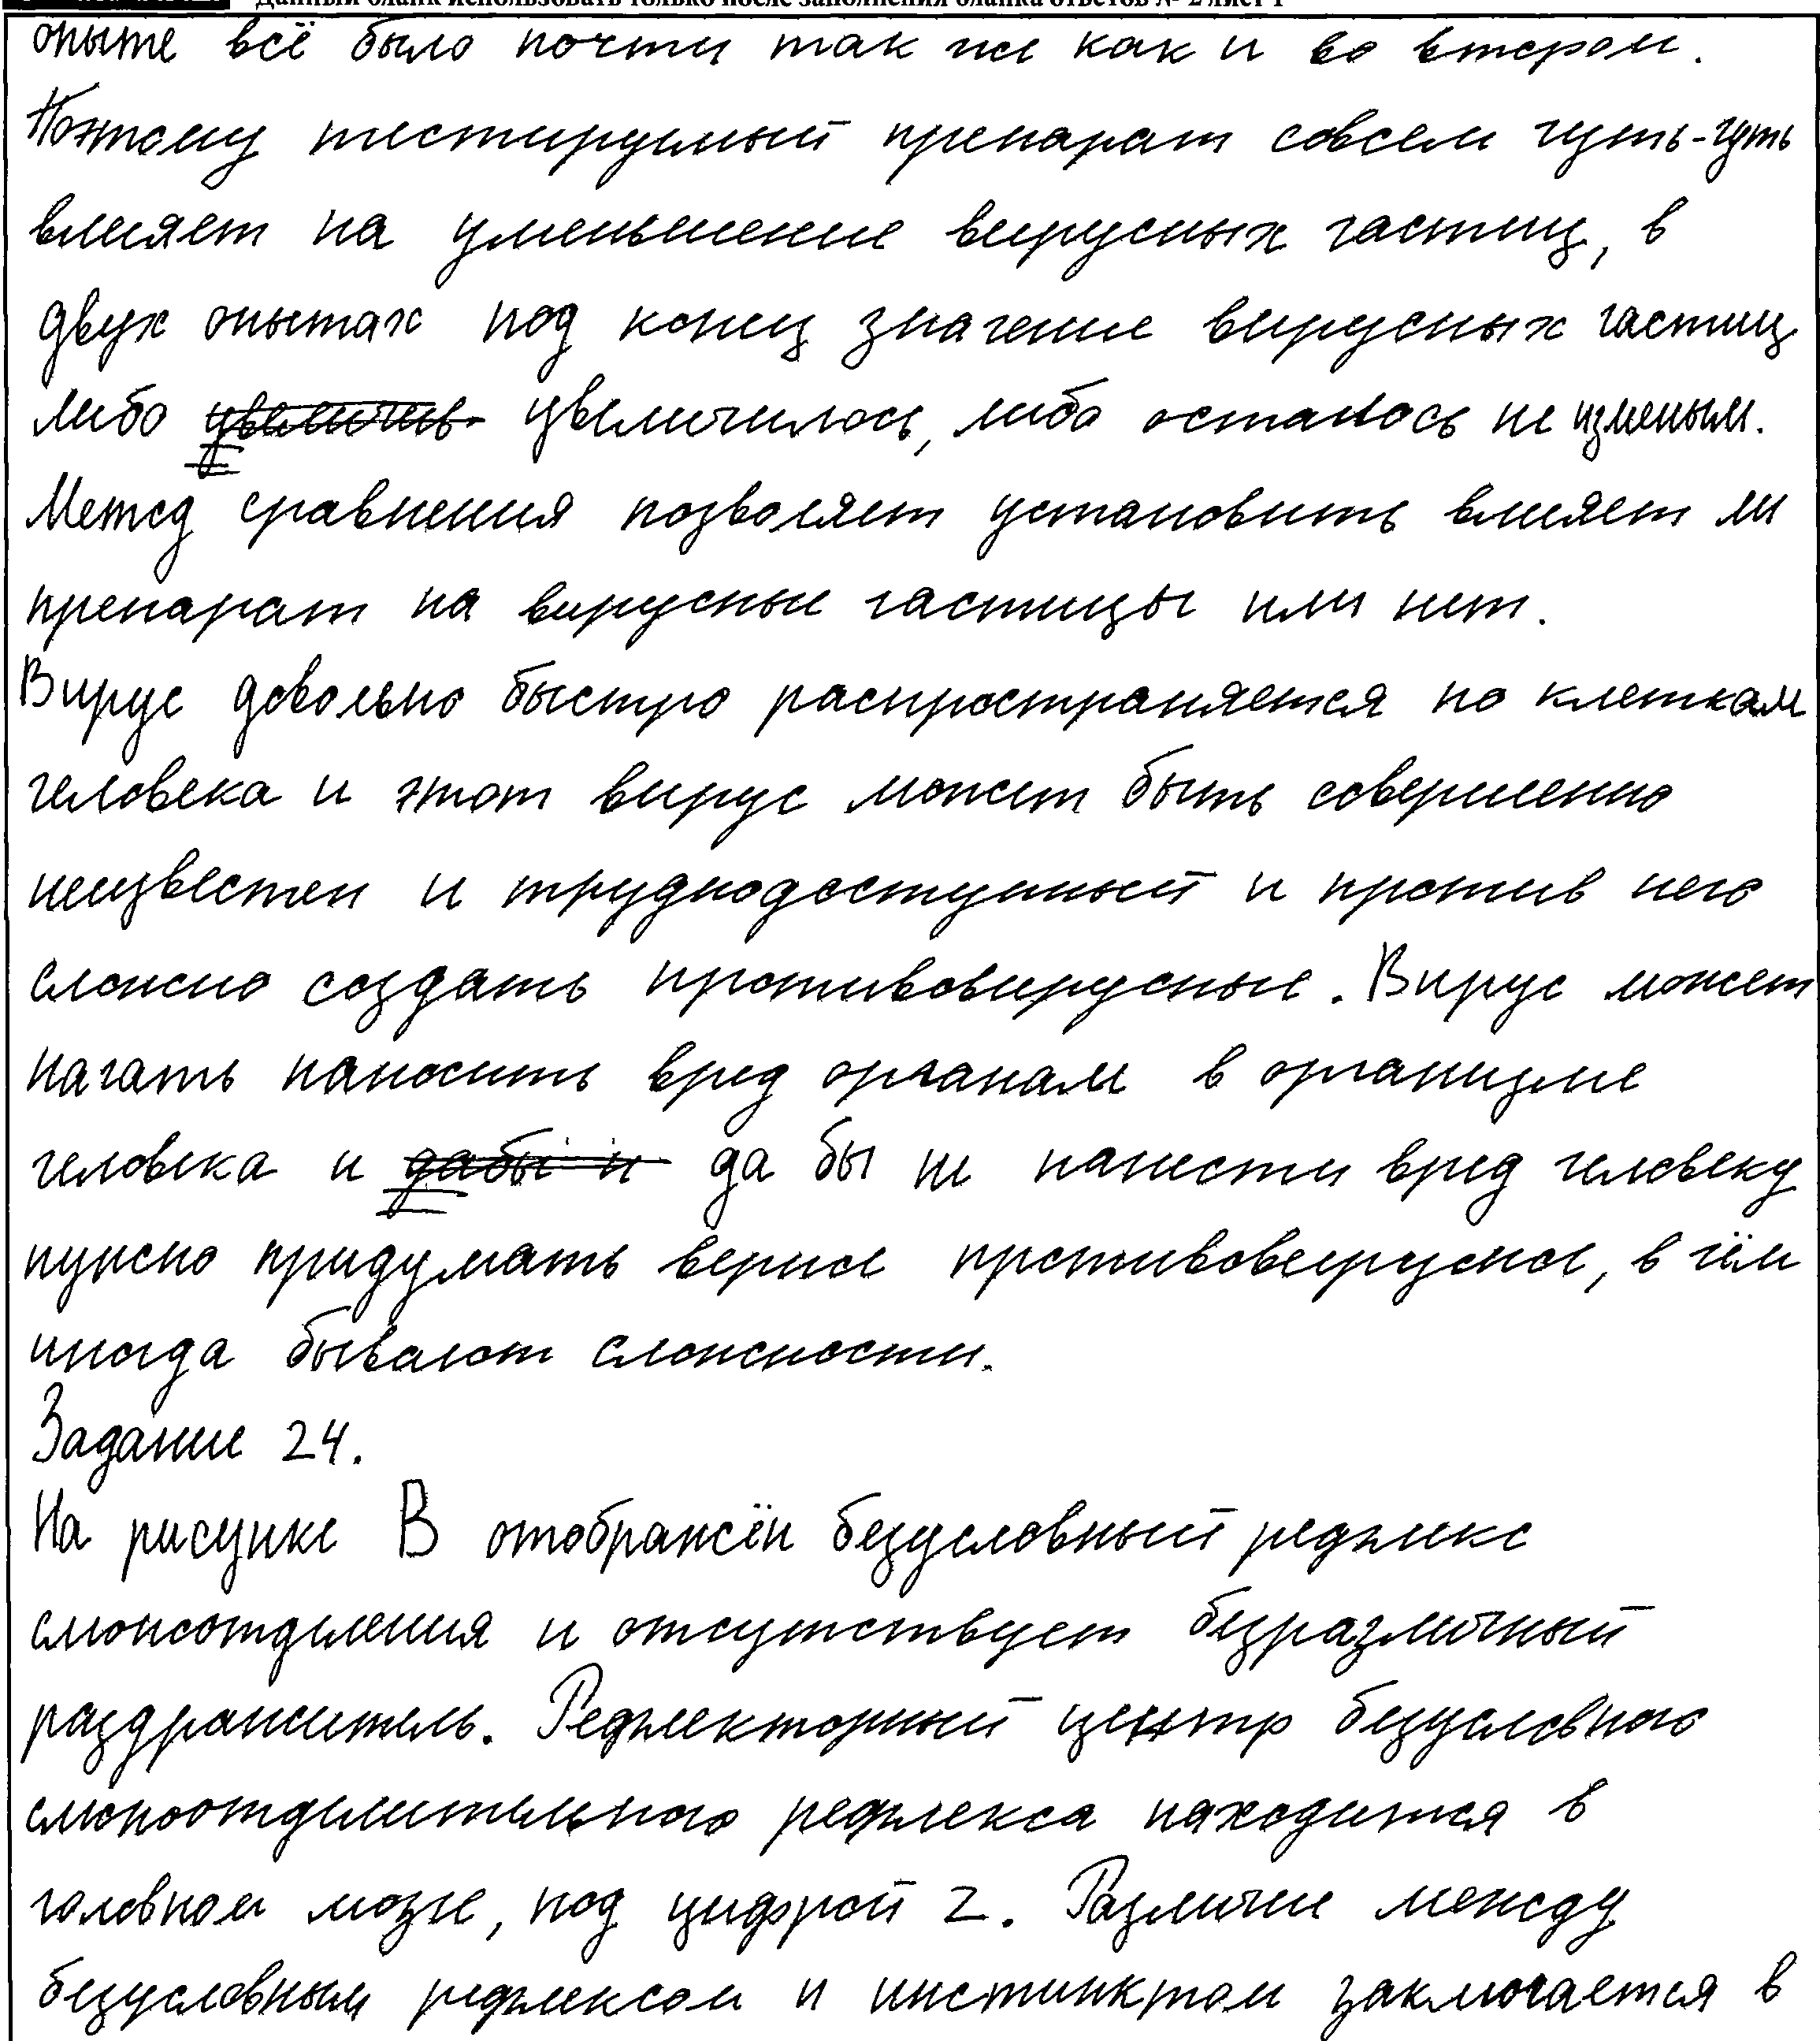 Данный бланк использовать только после заполнения бланка ответов № 2 лист 1
опыте всё было почти так же как и во втором.
Поэтому тестируемый препарат совсем чуть-чуть
влияет на уменьшение вирусных частиц, в
двух опытах под конец значение вирусных частиц
либо увеличив увеличилось, либо осталось не изменым.
Метод сравнения позволяет установить влияет ли
препарат на вирусные частицы или нет.
Вирус довольно быстро распространяется по клеткам
человека и этот вирус может быть совершенно
неизвестен и труднодоступный и против него
сложно создать противовирусные. Вирус может
начать наносить вред органам в организме
человека и дабы н да бы не нанести вред человеку
нужно придумать верное противовирусное, в чём
иногда бывают сложности.
Задание 24.
На рисунке В отображён безусловный рефлекс
слюноотделения и отсутствует безразличный
раздражитель. Рефлекторный центр безусловного
слюноотделительного рефлекса находится в
головном мозге, под цифрой 2. Различие между
безусловным рефлексом и инстинктом заключается в